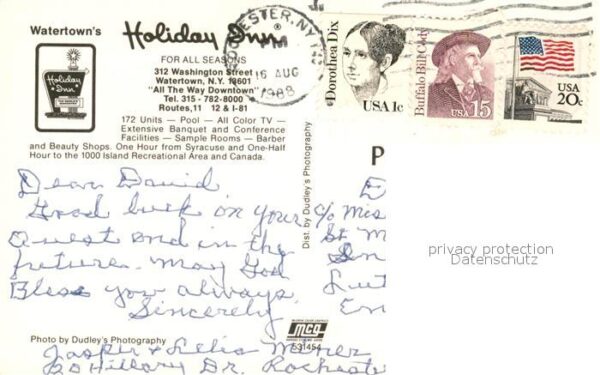 Watertown's
Holiday Inn®
FOR ALL SEASONS
312 Washington Street
Watertown, N.Y. 13601
"All The Way Downtown"
Tel. 315 - 782-8000
Routes, 11 12 & I-81
Holiday Inn
172 Units — Pool — All Color TV —
Extensive Banquet and Conference
Facilities — Sample Rooms — Barber
and Beauty Shops. One Hour from Syracuse and One-Half
Hour to the 1000 Island Recreational Area and Canada.
ROCHESTER, NY
PM
16 AUG
1988
Dorothea Dix
USA 1c
Buffalo Bill Cody
USA 15
USA
20c
Dear David
Good luck on your
Quest and in the
future. May God
Bless you always.
Sincerely
Jasper &
20 Hillary Dr. Rocheste
Dist. by Dudley's Photography
P
E
c/o Mis
St M
En
privacy protection
Datenschutz
Photo by Dudley's Photography
mcg
531454